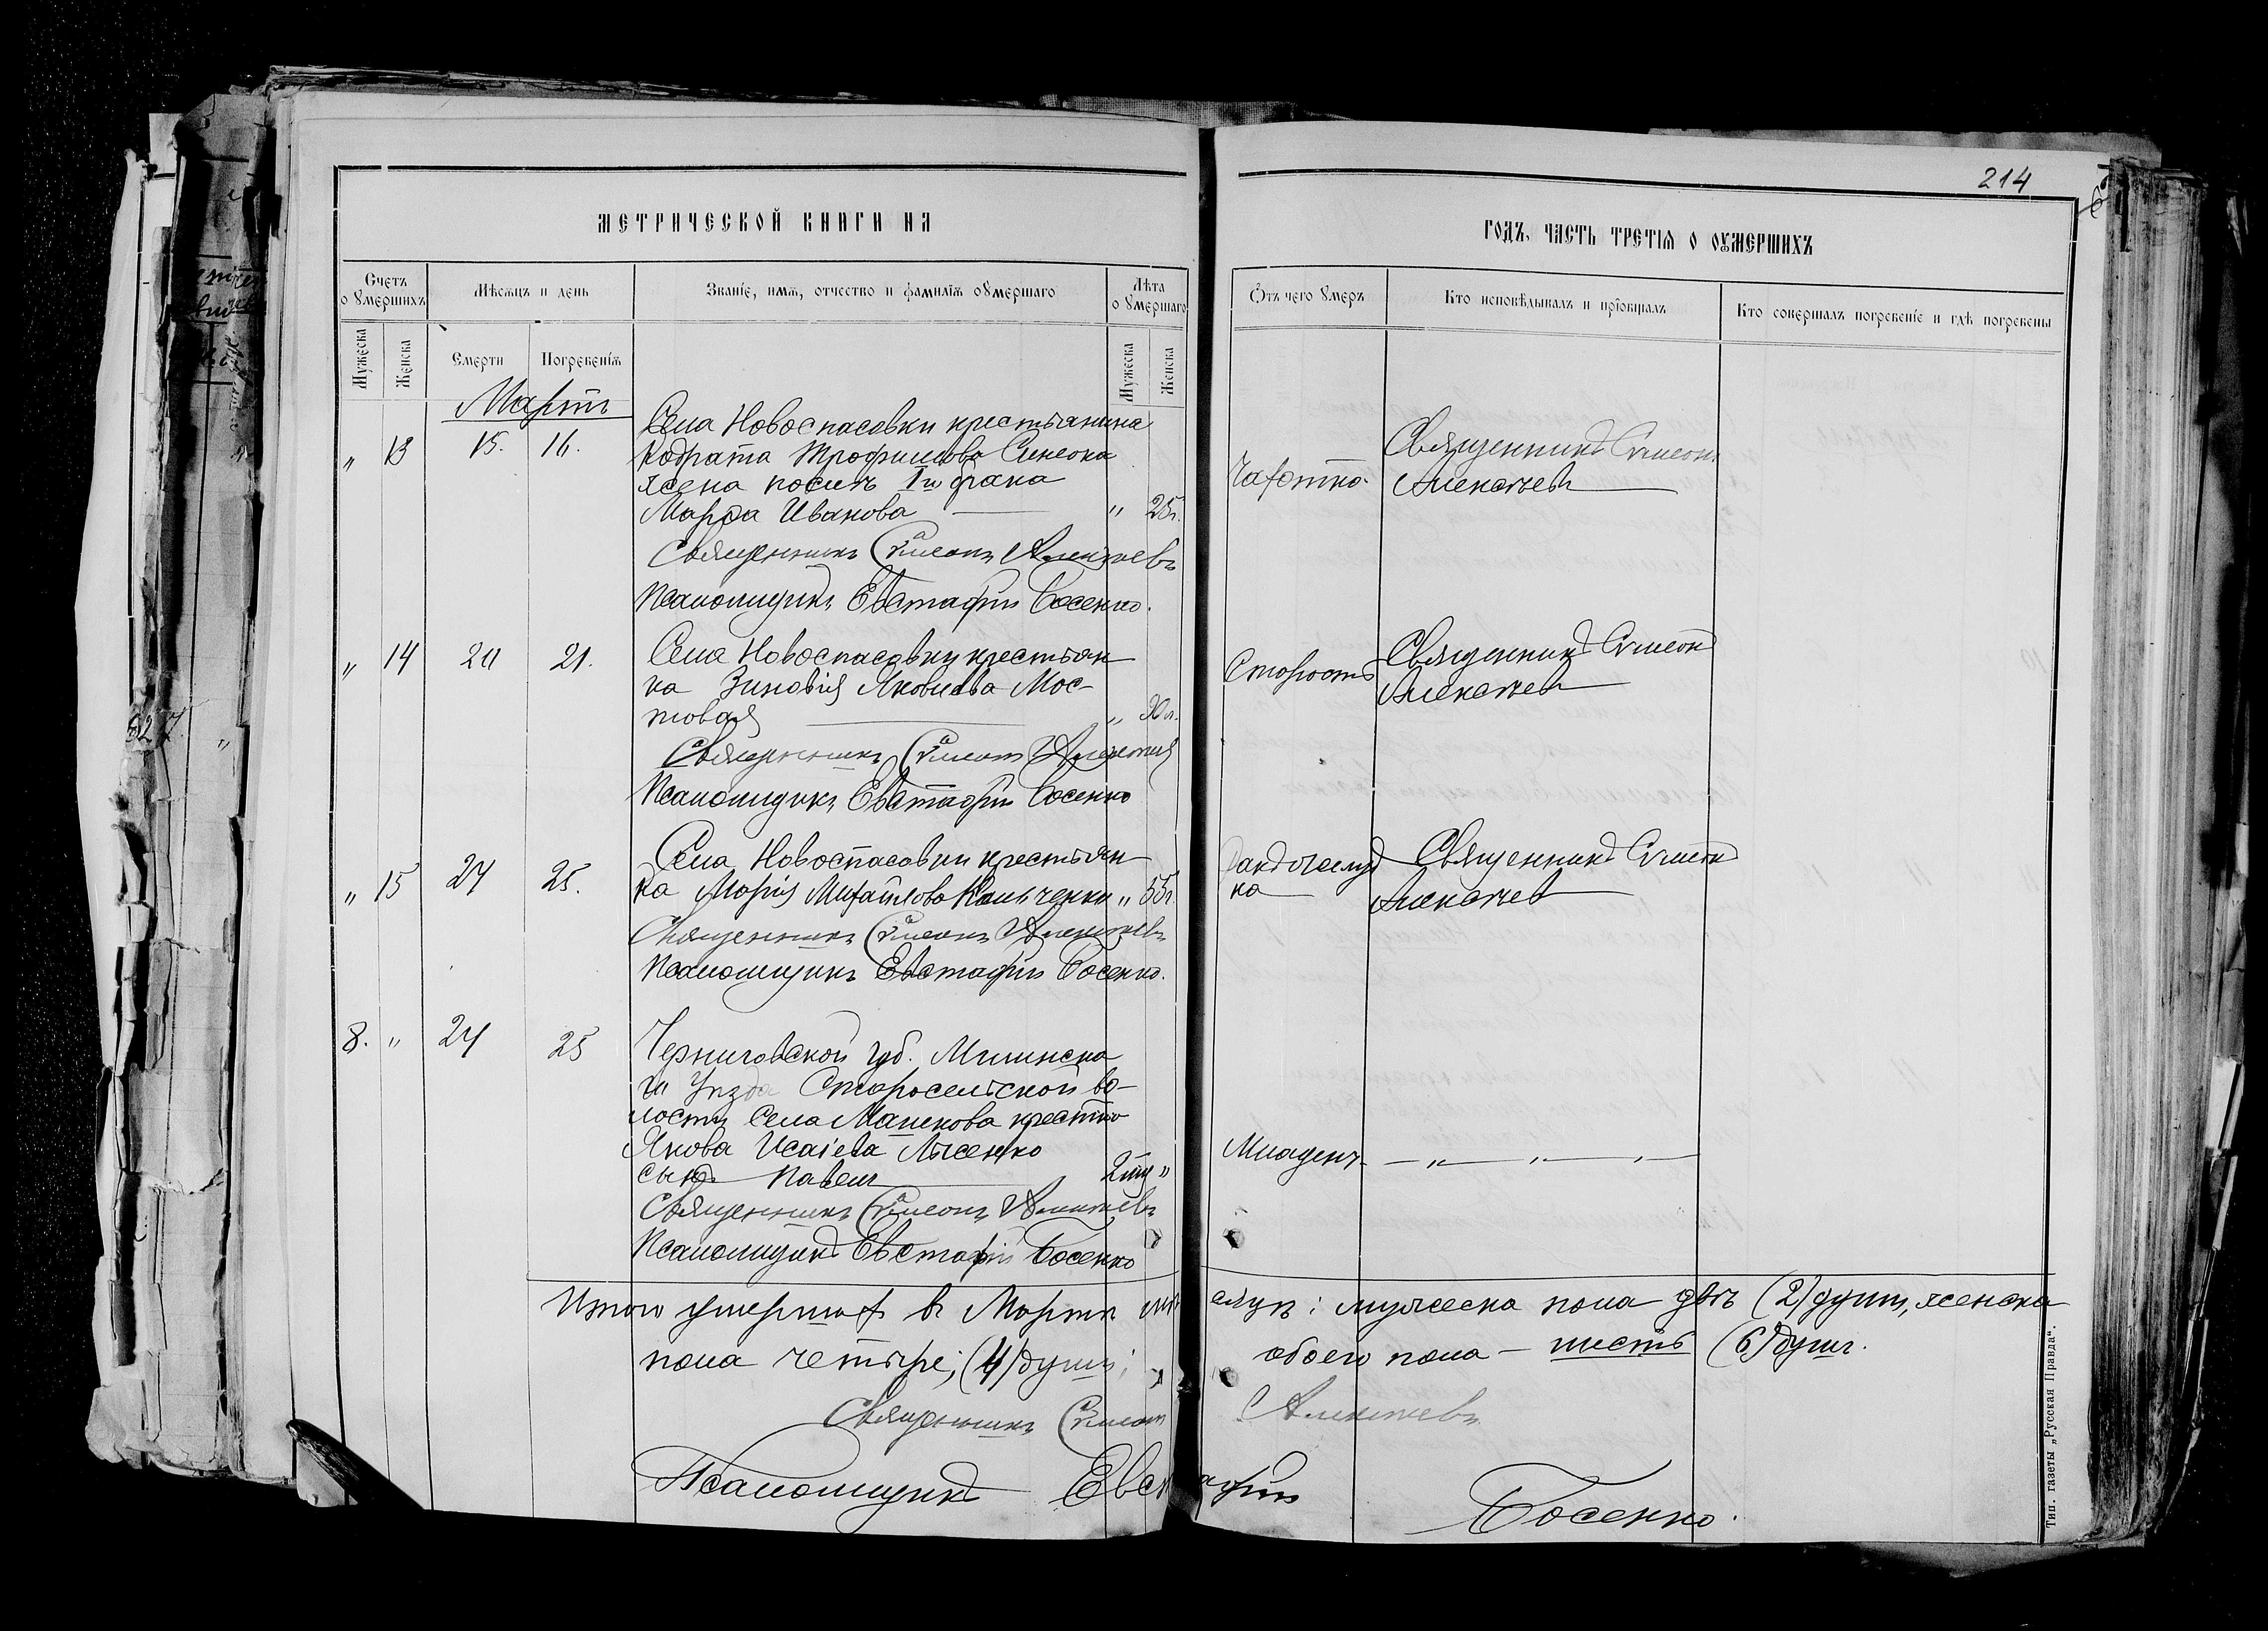 214
МЕТРИЧЕСКОЙ КНИГИ НА
ГОДЪ, ЧАСТЬ ТРЕТІѦ О ОУМЕРШИХЪ
Счетъ оумершихъ
Мѣсѧцъ и день
Званіе, имѧ, отчество и фамиліѧ оумершаго
Лѣта оумершаго
Отъ чего умеръ
Кто исповѣдывалъ и пріобщалъ
Кто совершалъ погребеніе и гдѣ погребены
Мужеска
Женска
Смерти
Погребеніѧ
Мужеска
Женска
Мартъ
„ 13 15. 16.
Села Новоспасовки крестьянина
Кодрата Трофимова Синеока
жена послѣ 1го брака
Марфа Иванова „ 25 л.
Чахотка.
Священникъ Симеонъ
Алексѣевъ
Священникъ Симеонъ Алексѣевъ
Псаломщикъ Евстафій Босенко.
„ 14 20 21.
Села Новоспасовки крестьян
ка Зиновія Яковлева Мос-
товая „ 90 л.
Старость
Священникъ Симеонъ
Алексѣевъ
Священникъ Симеонъ Алексѣевъ
Псаломщикъ Евстафій Босенко
„ 15 24 25.
Села Новоспасовки крестьян
ка Марія Михайлова „ 55 л.
Священникъ Симеонъ
Алексѣевъ
Священникъ Симеонъ Алексѣевъ
Псаломщикъ Евстафій Босенко.
8. „ 24 25
Черниговской губ. Мглинска
го Уѣзда Старосельской во-
лости села крестья
Якова Исаіева Лысенко
сынъ Павелъ 2 „
Младенч. „ „ „
Священникъ Симеонъ Алексѣевъ
Псаломщикъ Евстафій Босенко
Итого умершихъ въ Мартѣ мѣсяцѣ: мужеска пола двѣ (2) души, женска
пола четыре; (4) души; обоего пола - шесть (6) душъ.
Священникъ Симеонъ Алексѣевъ
Псаломщикъ Евстафій Босенко.
Тип. газеты „Русская Правда“.